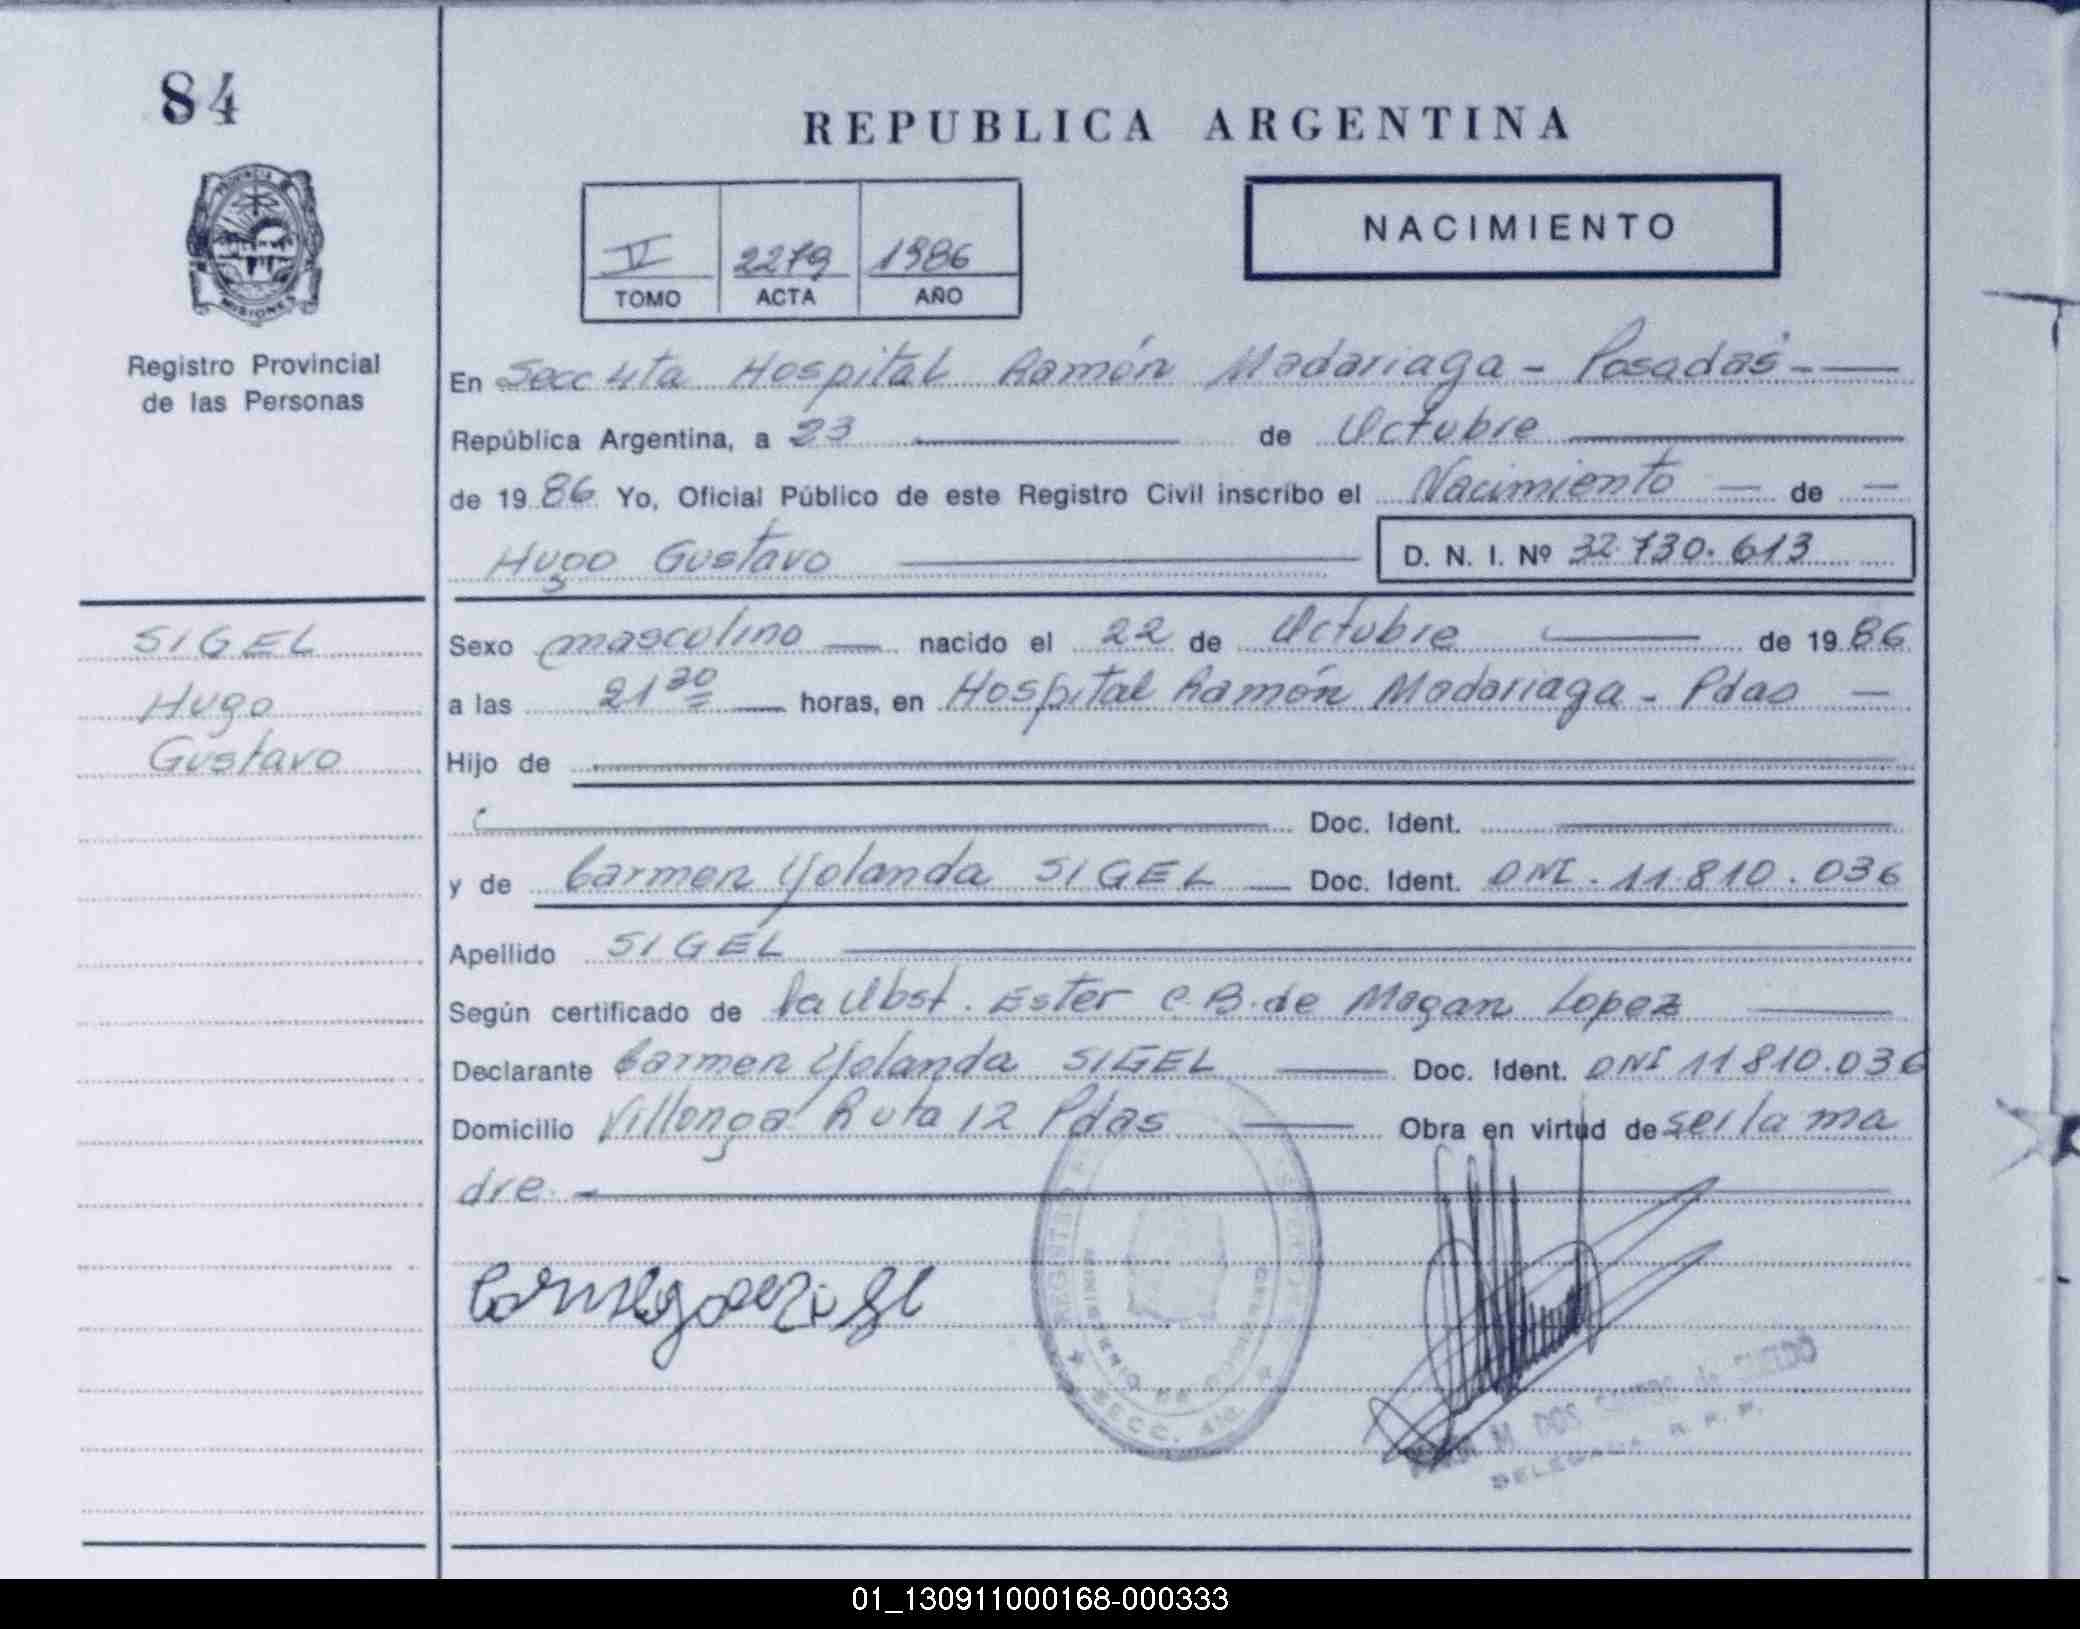 84
REPUBLICA ARGENTINA
NACIMIENTO
V 2279 1986
TOMO ACTA AÑO
PROVINCIA DE
MISIONES
Registro Provincial
de las Personas
En Secc 4ta Hospital Ramón Madariaga - Posadas -
República Argentina, a 23 de Octubre
de 1986 Yo, Oficial Público de este Registro Civil inscribo el Nacimiento de
Hugo Gustavo
D. N. I. Nº 32.730.613
SIGEL
Hugo
Gustavo
Sexo masculino nacido el 22 de Octubre de 1986
a las 21 30 horas, en Hospital Ramón Madariaga - Pdas
Hijo de
Doc. Ident.
y de Carmen Yolanda SIGEL Doc. Ident. DNI. 11.810.036
Apellido SIGEL
Según certificado de la Obst. Ester C. B. de Magan Lopez
Declarante Carmen Yolanda SIGEL Doc. Ident. DNI 11810.036
Domicilio Villonga Ruta 12 Pdas Obra en virtud de ser la ma
dre -
MINISTERIO DE GOBIERNO
SECC. 4ta.
M. DOS de
DELEGADA R. P. P.
01_130911000168-000333